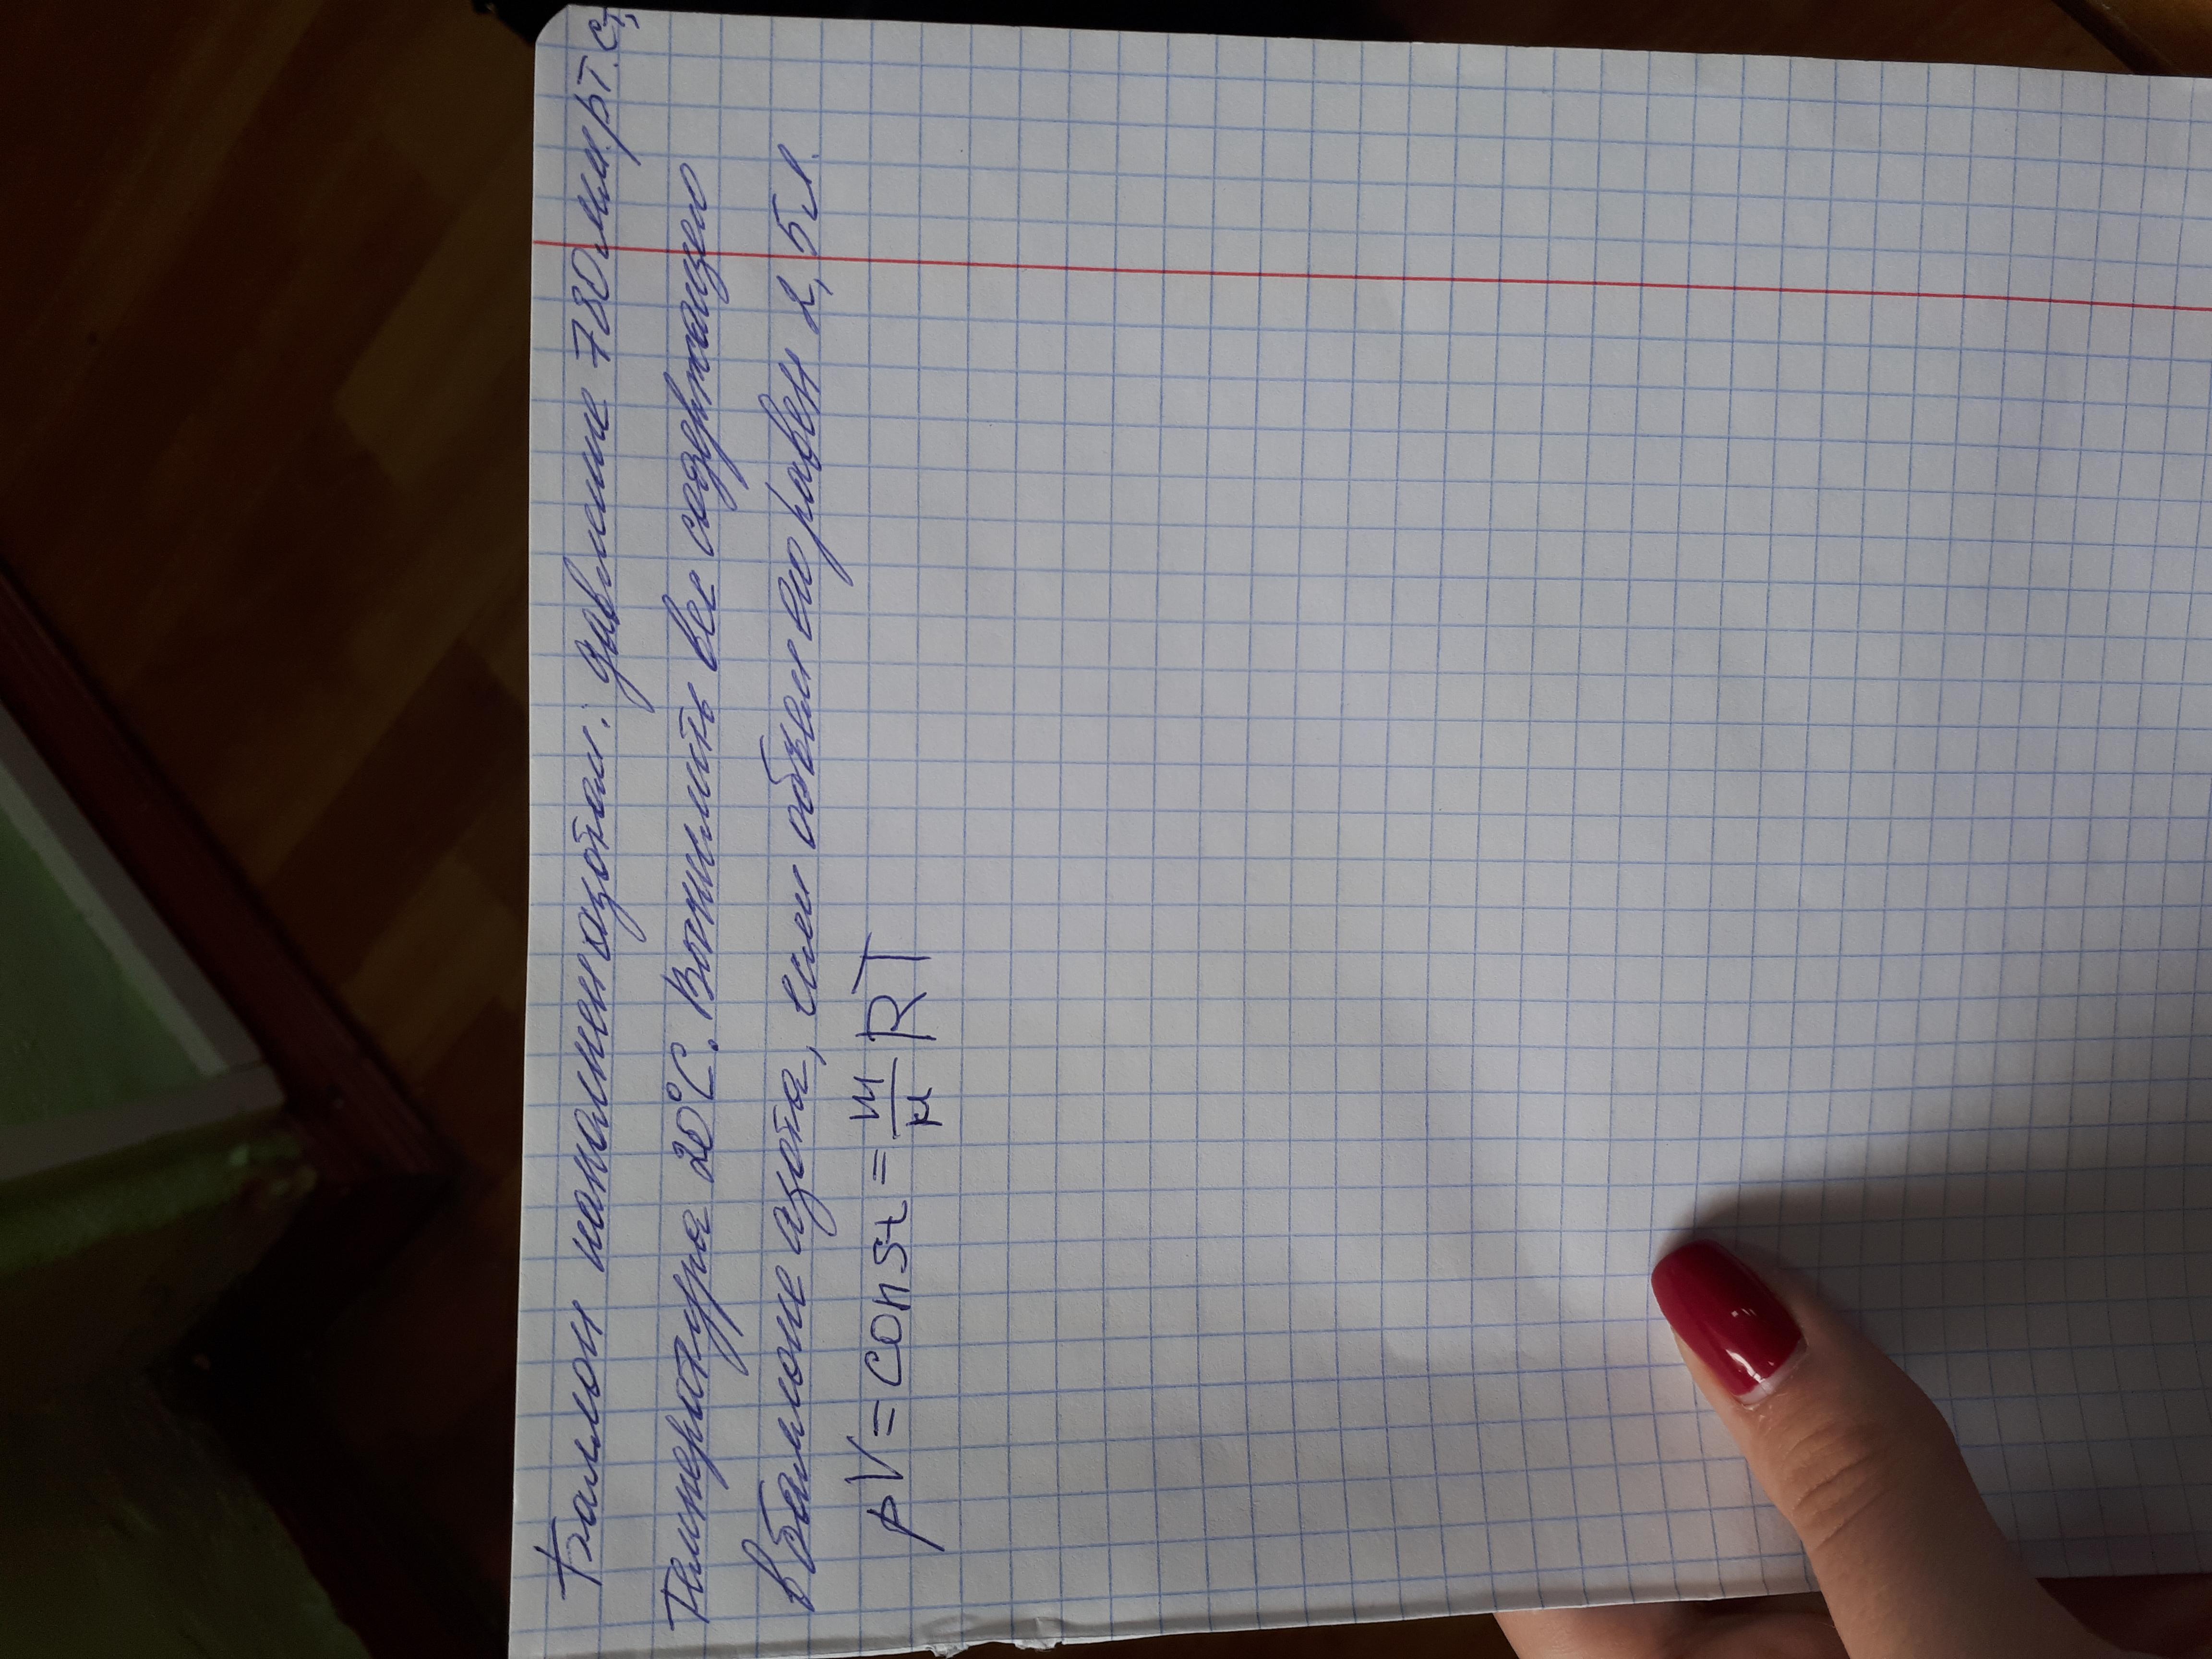 Баллон наполнен азотом. давление 780 мм. рт. ст,
Температура 20°C. Вычислить вес содержащего
в баллоне азота, если объем его равен 2,5 л.
pV = const = m/μ RT